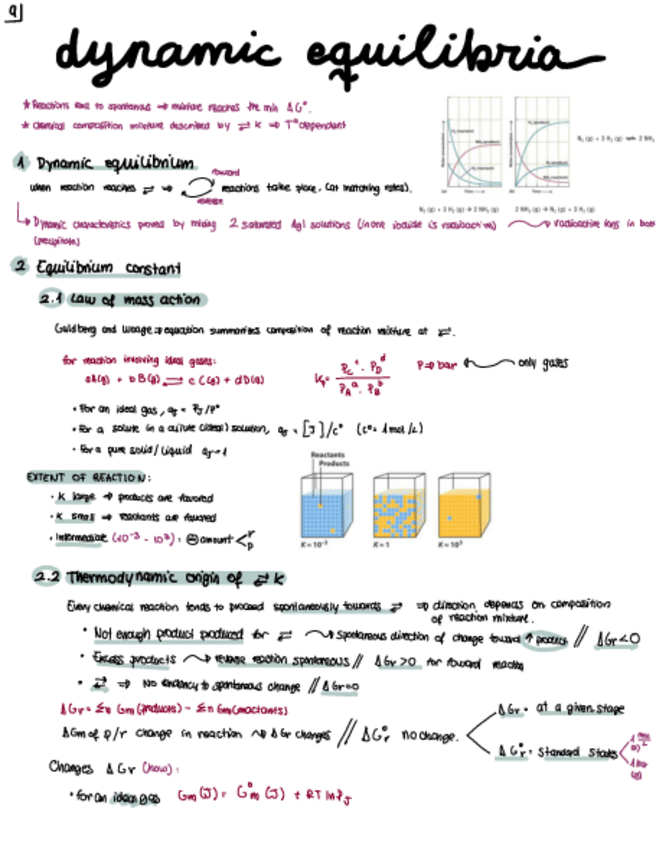 9
dynamic equilibria
* Reactions tend to spontaneous → mixture reaches the min ΔG°.
* Chemical composition mixture described by ⇌ K → Tª dependent
N₂ (g) + 3 H₂ (g) ⇌ 2 NH₃
N₂ (g) + 3 H₂ (g) → 2 NH₃ (g)
2 NH₃ (g) → N₂ (g) + 3 H₂ (g)
1 Dynamic equilibrium
when reaction reaches ⇌ ⇒ forward reverse reactions take place. (at matching rates).
Dynamic characteristics proved by mixing 2 saturated AgI solutions (in one iodide is radioactive) radioactive ions in both
(precipitate)
2 Equilibrium constant
2.1 Law of mass action
Guldberg and Waage ⇒ equation summarises composition of reaction mixture at ⇌.
for reaction involving ideal gases:
aA(g) + bB(g) ⇌ cC(g) + dD(g)
Kp = Pc^c · PD^d / PA^a · PB^b
P ⇒ bar only gases
• For an ideal gas, aJ = PJ/P°
• For a solute in a dilute (ideal) solution, aJ = [J]/c° (c° = 1mol/L)
• For a pure solid/liquid aJ = 1
EXTENT OF REACTION:
• K large → products are favored
• K small → reactants are favored
• Intermediate (10⁻³ - 10³): amount < r p
Reactants
Products
K = 10⁻³
K = 1
K = 10³
2.2 Thermodynamic origin of ⇌ K
Every chemical reaction tends to proceed spontaneously towards ⇌ ⇒ direction depends on composition
of reaction mixture.
• Not enough product produced for ⇌ spontaneous direction of change toward ↑ product // ΔGr < 0
• Excess products reverse reaction spontaneous // ΔGr > 0 for forward reaction
• ⇌ ⇒ No tendency to spontaneous change // ΔGr = 0
ΔGr = Σn Gm(products) - Σn Gm(reactants)
ΔGm of p/r change in reaction → ΔGr changes // ΔG°r no change.
ΔGr = at a given stage
ΔG°r = Standard states
1 bar
(g)
Changes ΔGr (how):
• for an ideal gas Gm (J) = G°m (J) + RT ln PJ